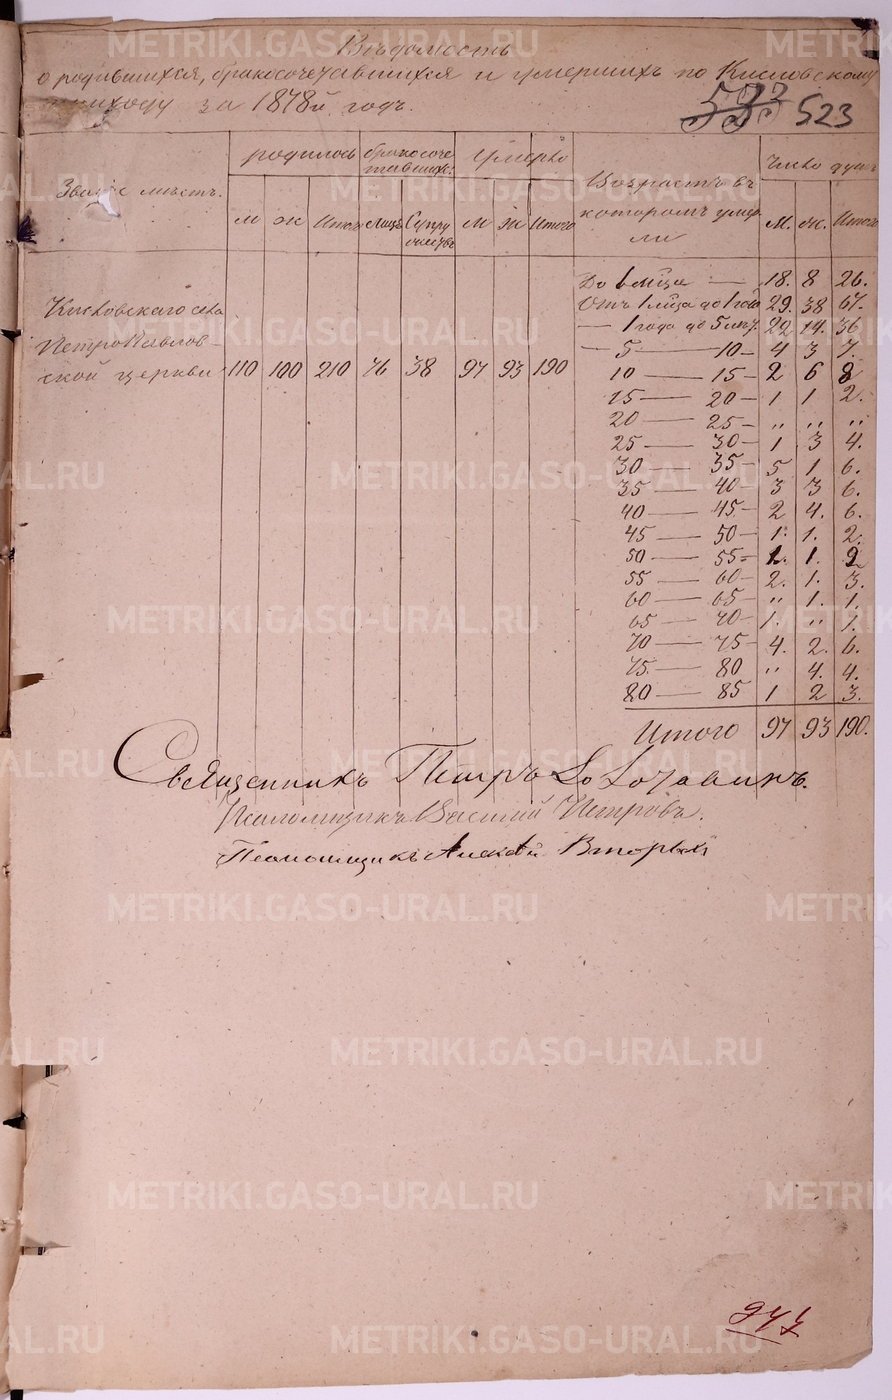 Вѣдомость
о родившихся, бракосочетавшихся и умершихъ по Кисловскому
приходу за 1878й годъ.
533 523
Званіе мѣстъ.
родилось
бракосоче
тавших:
Умерло
Возрастъ въ
которомъ умер
ли
Число душъ
м ж Итого Лицъ Супру
жествъ м ж Итого м. ж. Итого
Кисловскаго села
ПетроПавлов-
ской церкви 110 100 210 76 38 97 93 190
До 1 мѣсца — 18. 8 26.
Отъ 1 мѣца до 1 года 29. 38 67.
— 1 года до 5 лѣт. 22 14. 36
— 5 — 10 — 4 3 7.
10 — 15 — 2 6 8
15 — 20 — 1 1 2.
20 — 25 — „ „ „
25 — 30 — 1 3 4.
30 — 35 — 5 1 6.
35 — 40 — 3 3 6.
40 — 45 — 2 4. 6.
45 — 50 — 1. 1. 2.
50 — 55 — 1. 1. 2
55 — 60 — 2. 1. 3.
60 — 65 — „ 1. 1.
65 — 70 — 1. „ 1.
70 — 75 — 4. 2. 6.
75 — 80 „ 4. 4.
80 — 85 1 2 3.
Итого 97 93 190.
Священникъ Петръ
Псаломщикъ Василій Петровъ.
Псаломщикъ Алексѣй Вторых
METRIKI.GASO-URAL.RU